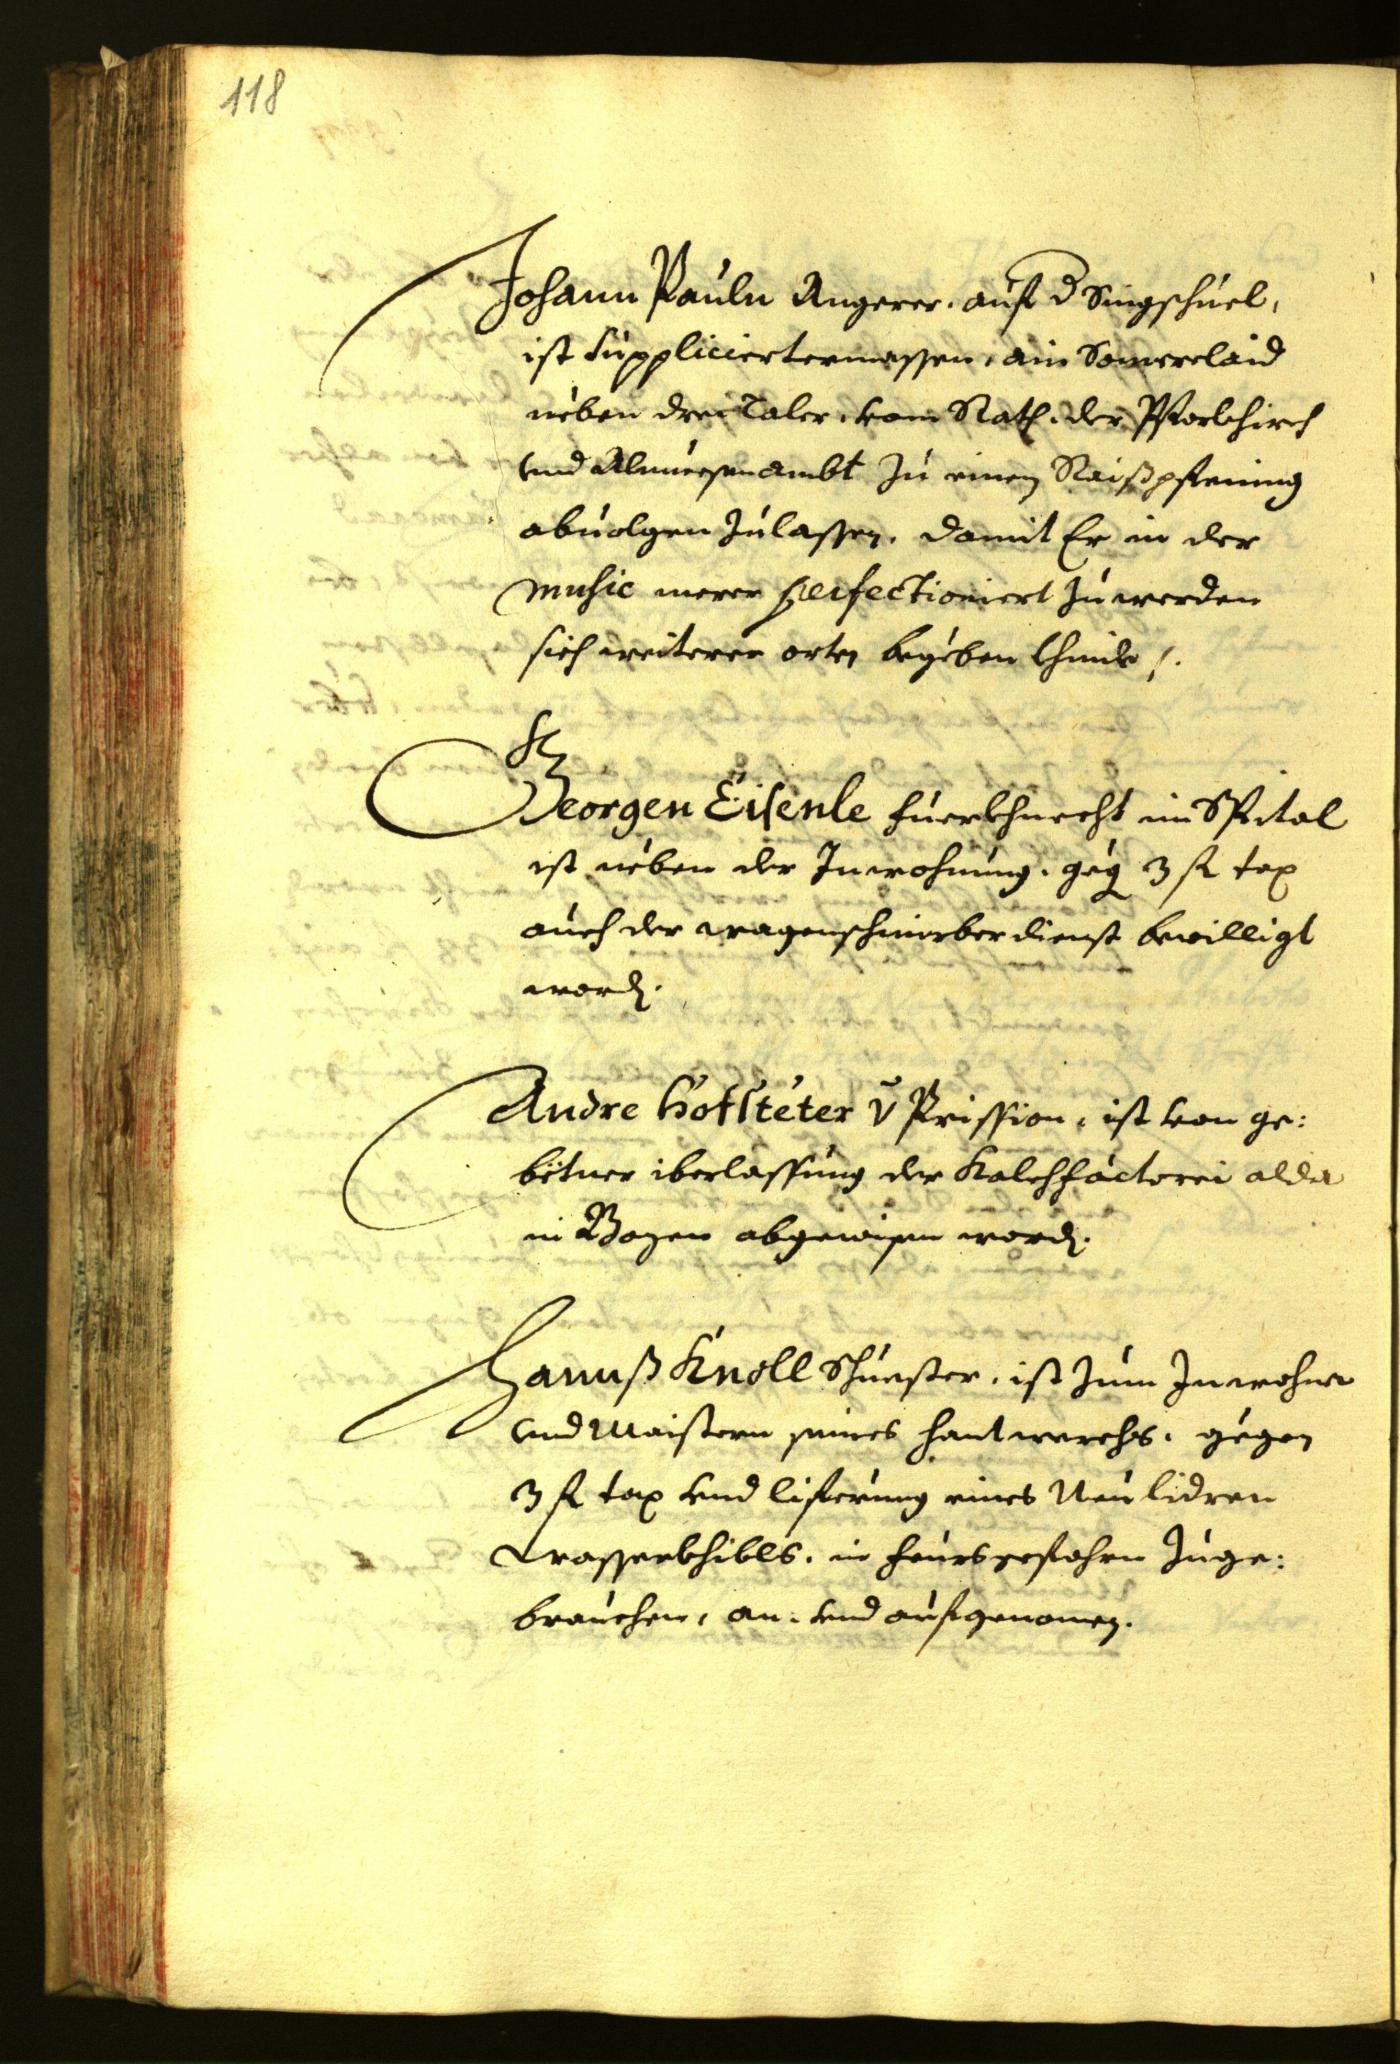 118
Johann Pauln Angerer. auf d Singschuel,
ist suppliciertermassen, ain Somerclaid
neben drei Taler. vom Rath. der Pfarkhirch
vnd Almuesenambt zu einen Raißpfening
abuolgen zulassen. damit Er in der
music merer perfectioniert zuwerden
sich weiterer orten begeben khinde /.
Georgen Eisenle fuerkhnecht im Spital
ist neben der Inwohnung. geg 3 fl tax
auch der wagenschmirber dienst bewilligt
word.
Andre Hofsteter v Prission. ist von ge:
betner iberlassung der Kalchfactorei alda
in Bozen abgewisen word.
Hannß Knoll Schuester. ist zum Inwohner
vnd Maistern seines hantwerchs. gegen
3 fl tax vnd liferung eines Neu lidren
Wasserkhibls. in feursgefahrn zuge:
brauchen, an- vnd aufgenomen.